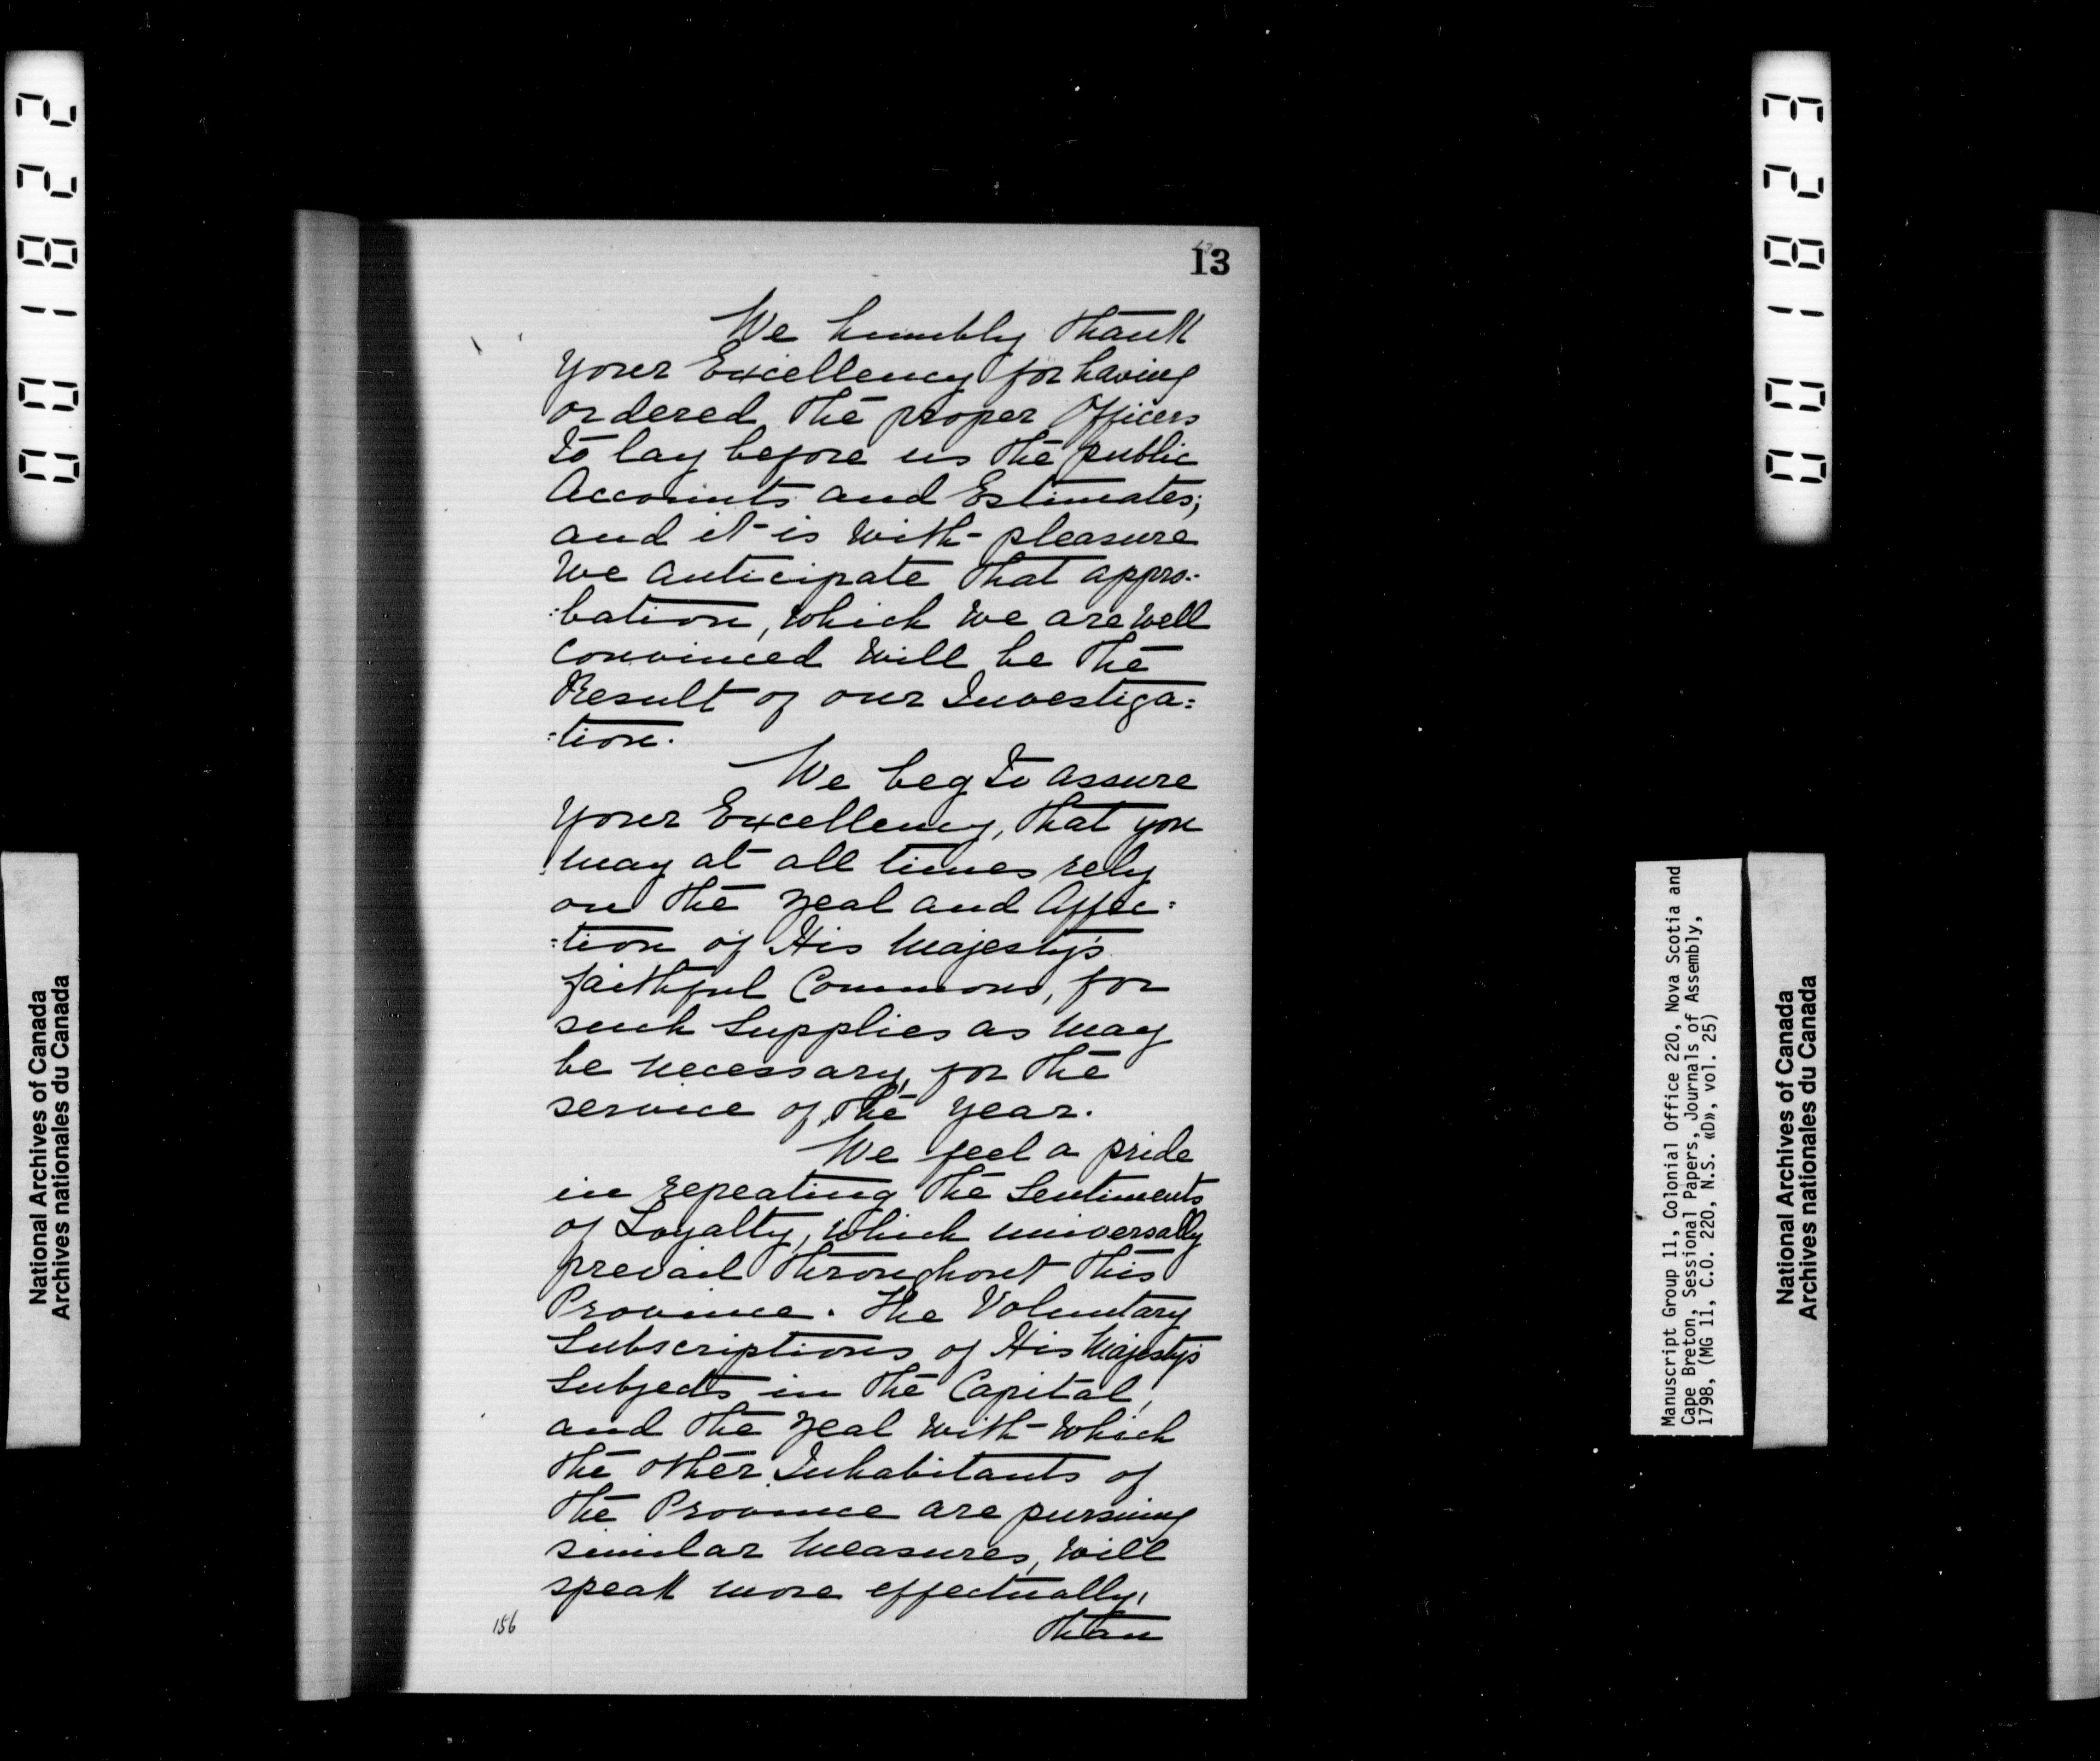 001822
National Archives of Canada
Archives nationales du Canada
13
We humbly thank
Your Excellency for having
ordered the proper Officers
to lay before us the public
Accounts and Estimates;
and it is with pleasure
We anticipate that appro-
:bation, which we are well
convinced will be the
Result of our Investiga=
=tion.
We beg to assure
Your Excellency, that you
may at all times rely
on the zeal and Affec=
=tion of His Majesty's
faithful Commons, for
such Supplies as may
be necessary, for the
service of the year.
We feel a pride
in repeating the Sentiments
of Loyalty, which universally
prevail throughout this
Province. The Voluntary
Subscriptions of His Majesty's
Subjects in the Capital,
and the zeal with which
the other Inhabitants of
the Province are pursuing
similar measures, will
speak more effectually,
than
156
Manuscript Group 11, Colonial Office 220, Nova Scotia and
Cape Breton, Sessional Papers, Journals of Assembly,
1798, (MG 11, C.O. 220, N.S. «D», vol. 25)
001823
National Archives of Canada
Archives nationales du Canada